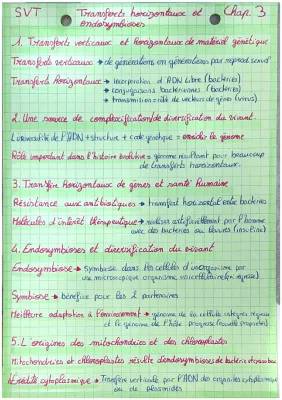 SVT Transferts horizontaux et Chap. 3
endosymbioses
1. Transferts verticaux et horizontaux de matériel génétique
Transferts verticaux → de générations en générations par reprod. sexué
Transferts horizontaux → incorporation d'ADN libre (bactéries)
→ conjugaisons bactériennes (bactéries)
→ transmission rôle de vecteurs de gènes (virus)
2. Une source de complexification/de diversification du vivant.
L'universalité de l'ADN + structure + code génétique = enrichir le génome
Rôle important dans l'histoire évolutive = génome résultant pour beaucoup
de transferts horizontaux.
3. Transfère horizontaux de gènes et santé humaine
Résistance aux antibiotiques → transfert horizontal entre bactéries
Molécules d'intérêt thérapeutique → réaliser artificiellement par l'homme
avec des bactéries ou levures (insuline)
4. Endosymbioses et diversification du vivant
Endosymbiose → Symbiose dans les cellules d'un organisme par
un microscopique organisme
Symbiose → bénéfice pour les 2 partenaires
Meilleure adaptation à l'environnement → génome de la cellule intégrée régresse
et le génome de l'hôte progresse
5. L'origines des mitochondries et des chloroplastes
Mitochondries et chloroplastes résulte d'endosymbioses de bactérie et
Hérédité cytoplasmique → Transfère verticale par l'ADN des organites cytoplasmique
ou de plasmides